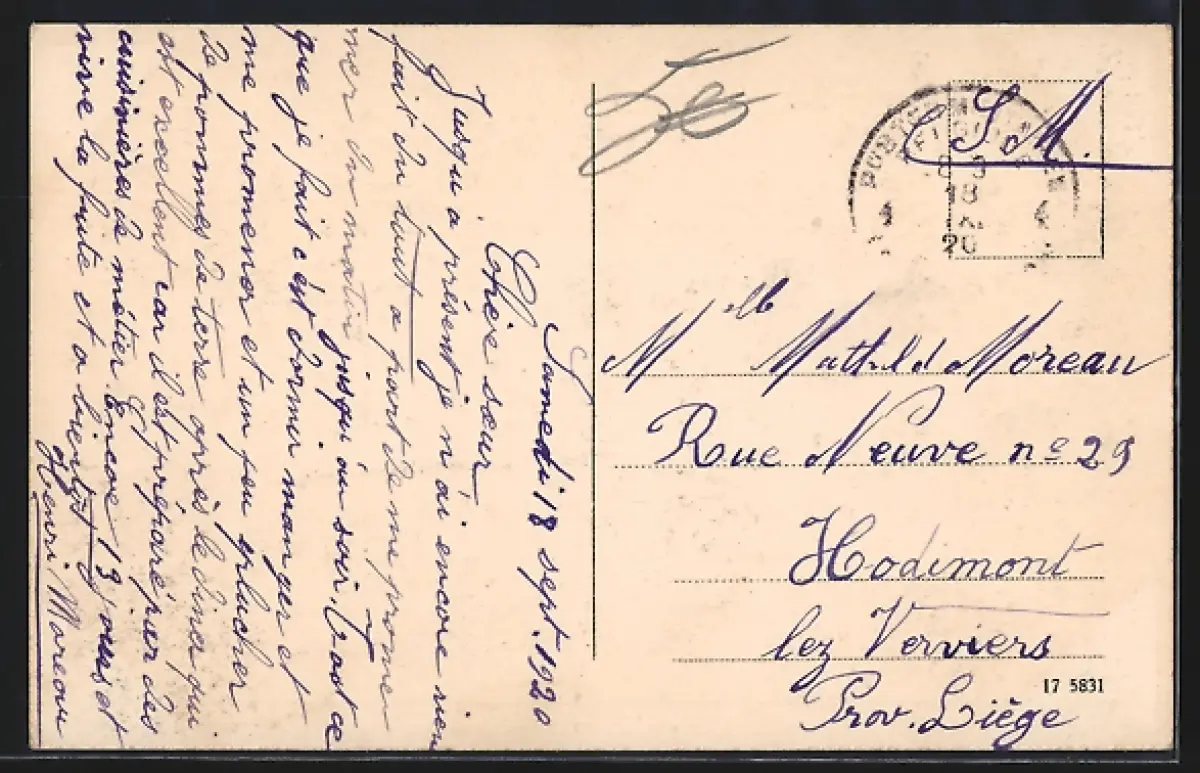 Samedi 18 sept. 1920
Chère sœur
Jusqu'a présent je n'ai encore rien
fait du tout a part de me prome
mer du matin jusqu'au soir. Tout ce
que je fait c'est dormir manger et
me promener et un peu eplucher
de pommes de terre après le diner qui
est excellent car il est préparé par des
cuisinières de métier. Encore 13 jours et
vive la fuite et a bientôt
Henri Moreau
S.M.
18
20
Mlle Mathild Moreau
Rue Neuve nº 29
Hodimont
lez Verviers
Prov. Liège
17 5831